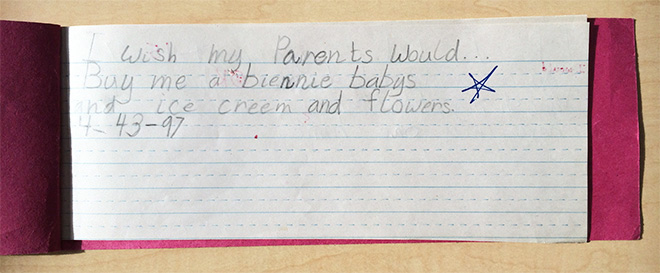 I wish my Parents would...
Buy me a biennie babys
and ice creem and flowers.
4-43-97